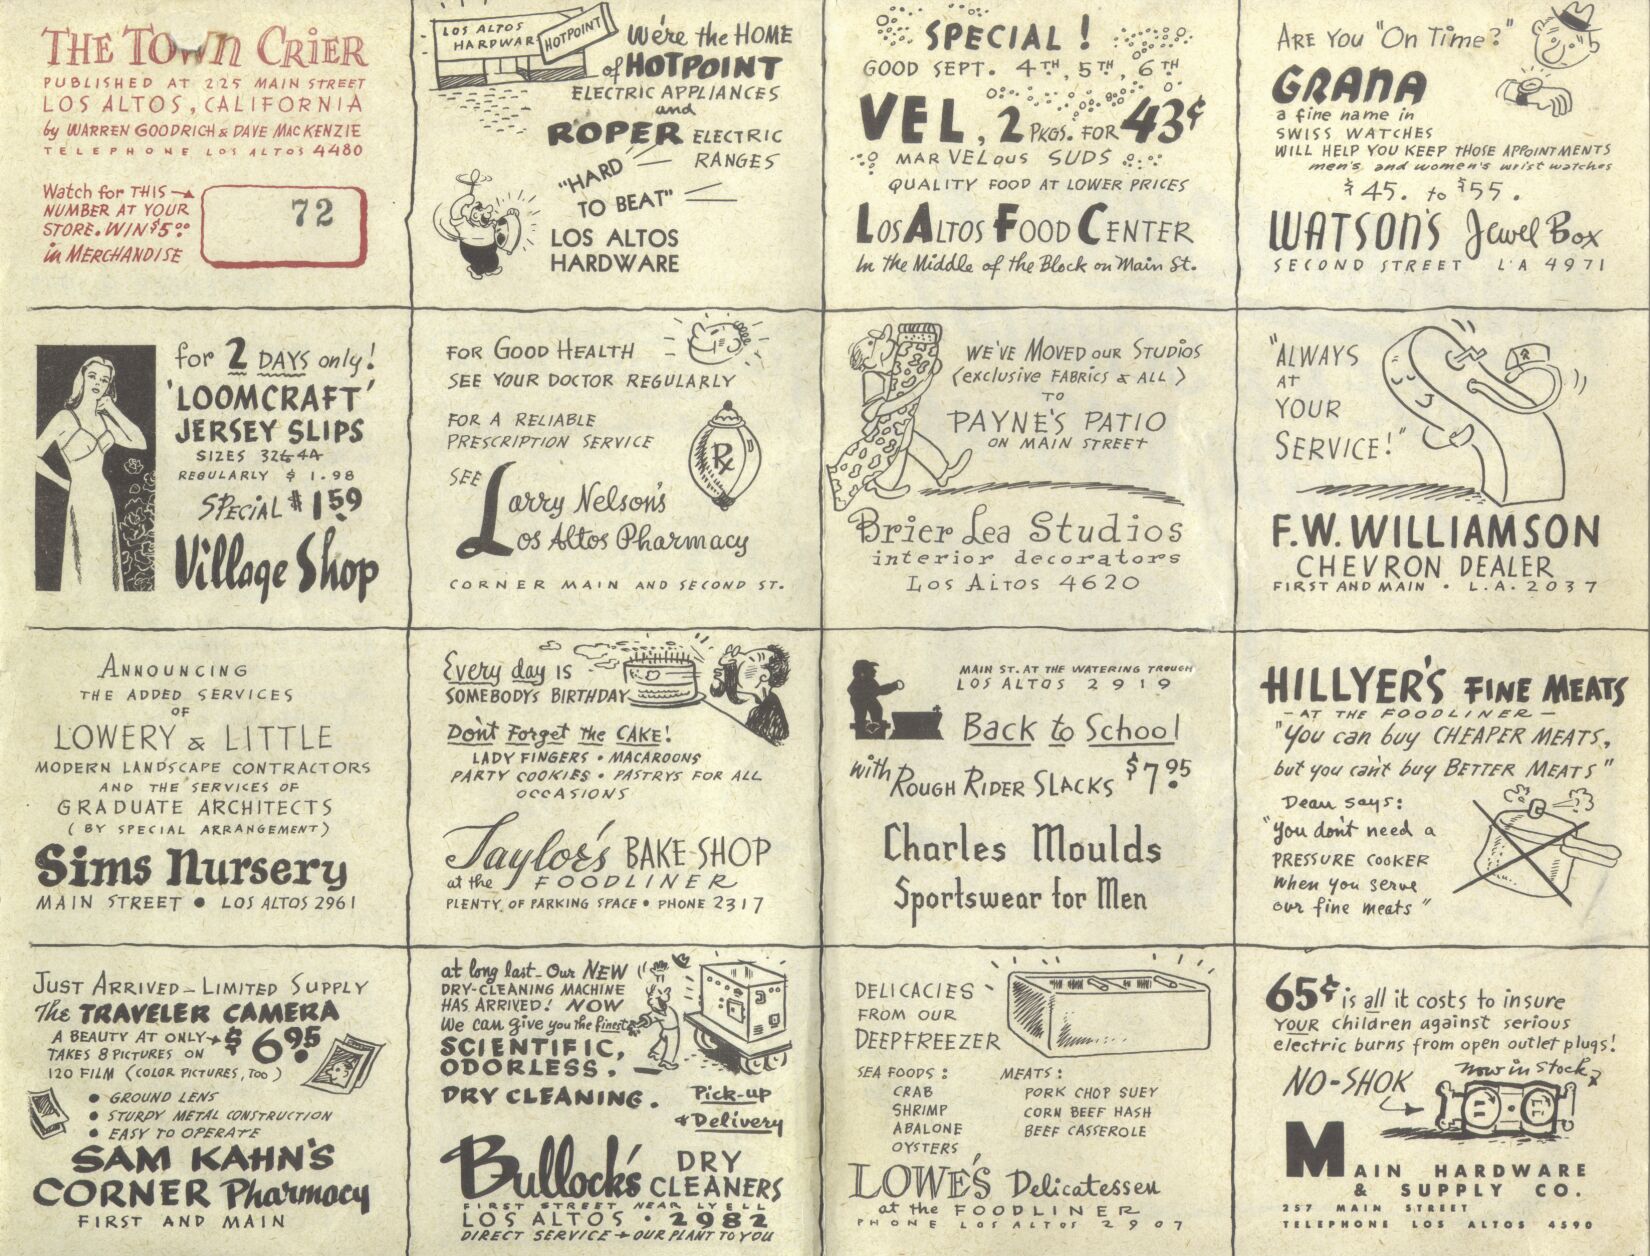 THE TOWN CRIER
PUBLISHED AT 225 MAIN STREET
LOS ALTOS, CALIFORNIA
by WARREN GOODRICH & DAVE MACKENZIE
TELEPHONE LOS ALTOS 4480
Watch for THIS
NUMBER AT YOUR
STORE. WIN $5.00
in MERCHANDISE
72
LOS ALTOS
HARDWARE
HOTPOINT
We're the HOME
of HOTPOINT
ELECTRIC APPLIANCES
and
ROPER ELECTRIC
RANGES
"HARD
TO BEAT"
LOS ALTOS
HARDWARE
SPECIAL!
GOOD SEPT. 4TH, 5TH, 6TH
VEL, 2 PKGS. FOR 43¢
MARVELOUS SUDS
QUALITY FOOD AT LOWER PRICES
LOS ALTOS FOOD CENTER
In the Middle of the Block on Main St.
ARE YOU "On Time?"
GRANA
a fine name in
SWISS WATCHES
WILL HELP YOU KEEP THOSE APPOINTMENTS
men's and women's wrist watches
$45. to $55.
WATSON'S Jewel Box
SECOND STREET LA 4971
for 2 DAYS only!
'LOOMCRAFT'
JERSEY SLIPS
SIZES 32 to 44
REGULARLY $1.98
SPECIAL $1.59
Village Shop
FOR GOOD HEALTH
SEE YOUR DOCTOR REGULARLY
FOR A RELIABLE
PRESCRIPTION SERVICE
SEE
Rx
Larry Nelson's
Los Altos Pharmacy
CORNER MAIN AND SECOND ST.
WE'VE MOVED OUR STUDIOS
(exclusive FABRICS & ALL)
TO
PAYNE'S PATIO
ON MAIN STREET
Brier Lea Studios
interior decorators
LOS ALTOS 4620
"ALWAYS
AT
YOUR
SERVICE!"
F.W. WILLIAMSON
CHEVRON DEALER
FIRST AND MAIN • L.A. 2037
ANNOUNCING
THE ADDED SERVICES
OF
LOWERY & LITTLE
MODERN LANDSCAPE CONTRACTORS
AND THE SERVICES OF
GRADUATE ARCHITECTS
(BY SPECIAL ARRANGEMENT)
Sims Nursery
MAIN STREET • LOS ALTOS 2961
Every day IS
SOMEBODYS BIRTHDAY
Don't Forget the CAKE!
LADY FINGERS • MACAROONS
PARTY COOKIES • PASTRYS FOR ALL
OCCASIONS
Taylor's BAKE-SHOP
at the FOODLINER
PLENTY OF PARKING SPACE • PHONE 2317
MAIN ST. AT THE WATERING TROUGH
LOS ALTOS 2919
Back to School
with ROUGH RIDER SLACKS $7.95
Charles Moulds
Sportswear for Men
HILLYER'S FINE MEATS
- AT THE FOODLINER -
"You can buy CHEAPER MEATS,
but you can't buy BETTER MEATS"
Dean says:
"you don't need a
PRESSURE COOKER
when you serve
our fine meats"
JUST ARRIVED - LIMITED SUPPLY
The TRAVELER CAMERA
A BEAUTY AT ONLY $6.95
TAKES 8 PICTURES ON
120 FILM (COLOR PICTURES, TOO)
• GROUND LENS
• STURDY METAL CONSTRUCTION
• EASY TO OPERATE
SAM KAHN'S
CORNER Pharmacy
FIRST AND MAIN
at long last - Our NEW
DRY-CLEANING MACHINE
HAS ARRIVED! NOW
We can give you the finest
SCIENTIFIC,
ODORLESS.
DRY CLEANING.
Pick-up
& Delivery
Bullock's DRY
CLEANERS
FIRST STREET NEAR LYELL
LOS ALTOS • 2982
DIRECT SERVICE → OUR PLANT TO YOU
DELICACIES
FROM OUR
DEEPFREEZER
SEA FOODS: MEATS:
CRAB PORK CHOP SUEY
SHRIMP CORN BEEF HASH
ABALONE BEEF CASSEROLE
OYSTERS
LOWE'S Delicatessen
at the FOODLINER
PHONE LOS ALTOS 2907
65¢ is all it costs to insure
YOUR children against serious
electric burns from open outlet plugs!
NO-SHOK now in Stock
MAIN HARDWARE
& SUPPLY CO.
257 MAIN STREET
TELEPHONE LOS ALTOS 4590